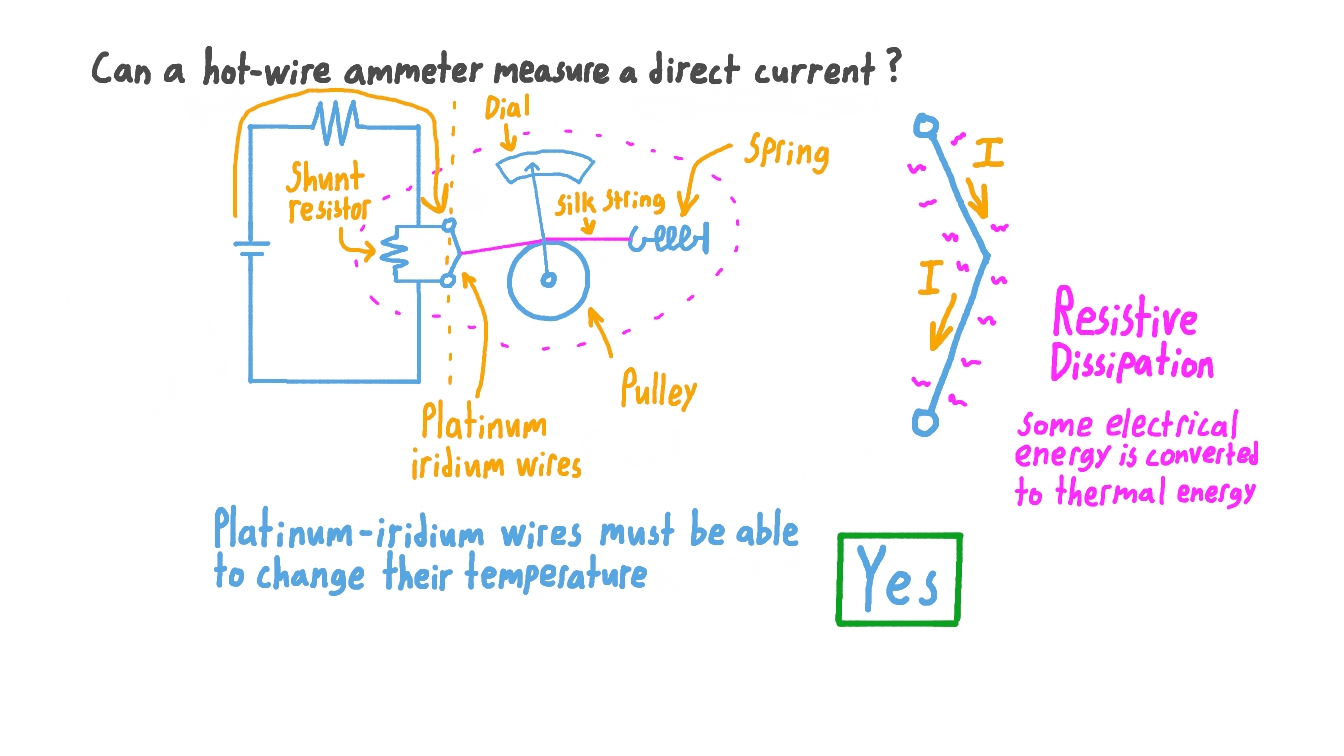 Can a hot-wire ammeter measure a direct current?
Dial
Spring
Shunt
resistor
Silk String
I
I
Resistive
Dissipation
Pulley
Platinum
iridium wires
Some electrical
energy is converted
to thermal energy
Platinum-iridium wires must be able
to change their temperature
Yes